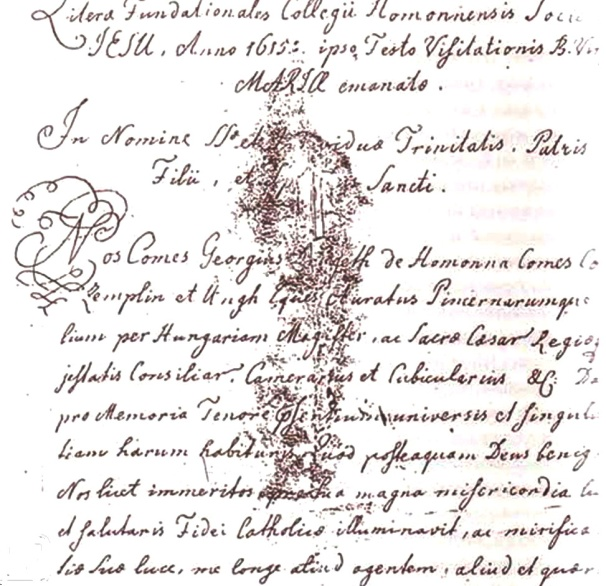 Literæ Fundationales Collegii Homonnensis Socie
JESU, Anno 1615. ipso Festo Visitationis B. Vir
MARIÆ emanatæ.
In Nomine SSæ et Individuæ Trinitatis, Patris
Filii, et Sancti.
Nos Comes Georgius de Homonna Comes
Zemplin et Ungh Eques Auratus Pincernarumque
lium per Hungariam Magister, ac Sacræ Cæsar Regiæ
jestatis Consiliar. Camerarius et Cubicularius &c:
pro Memoria Tenore psentium universis et singul
tiam harum habituris. Quod posteaquam Deus benig
Nos licet immeritos sua magna misericordia
et salutaris Fidei Catholicæ illuminavit, ac mirifica
suæ luce, me longe aliud agentem, aliud et quær